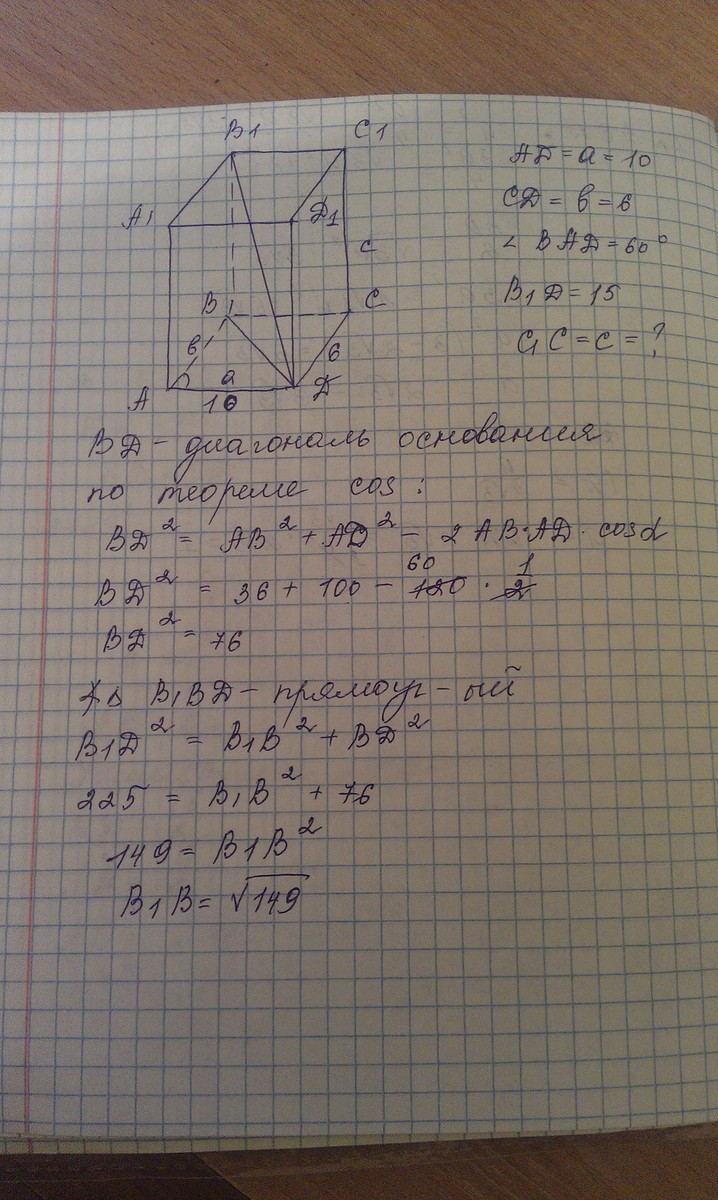 B1 C1
A1 D1
c
B C
в 6
a
A 10 D
AD = a = 10
CD = в = 6
∠ BAD = 60°
B1D = 15
C1C = c = ?
BD - диагональ основания
по теореме cos :
BD² = AB² + AD² - 2 AB·AD · cosα
60 1
BD² = 36 + 100 - 120 · 2
BD² = 76
Δ B1BD - прямоуг-ый
B1D² = B1B² + BD²
225 = B1B² + 76
149 = B1B²
B1B = √149